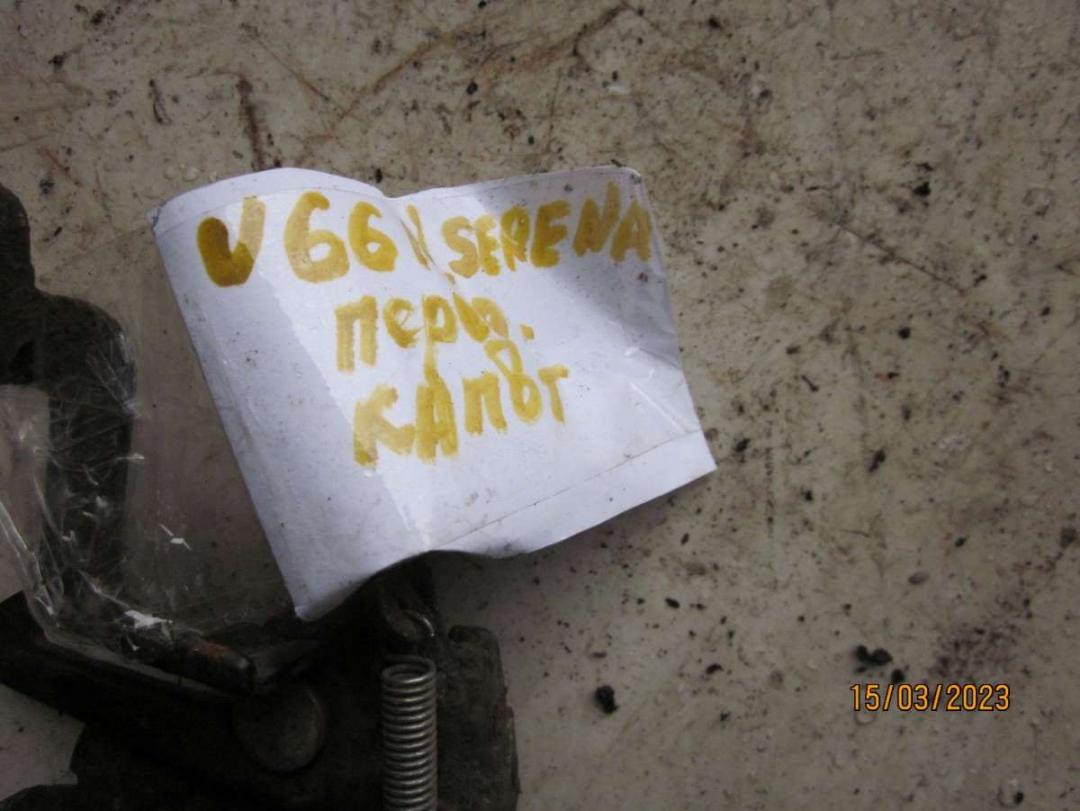 V66 SERENA
КАПОТ
15/03/2023